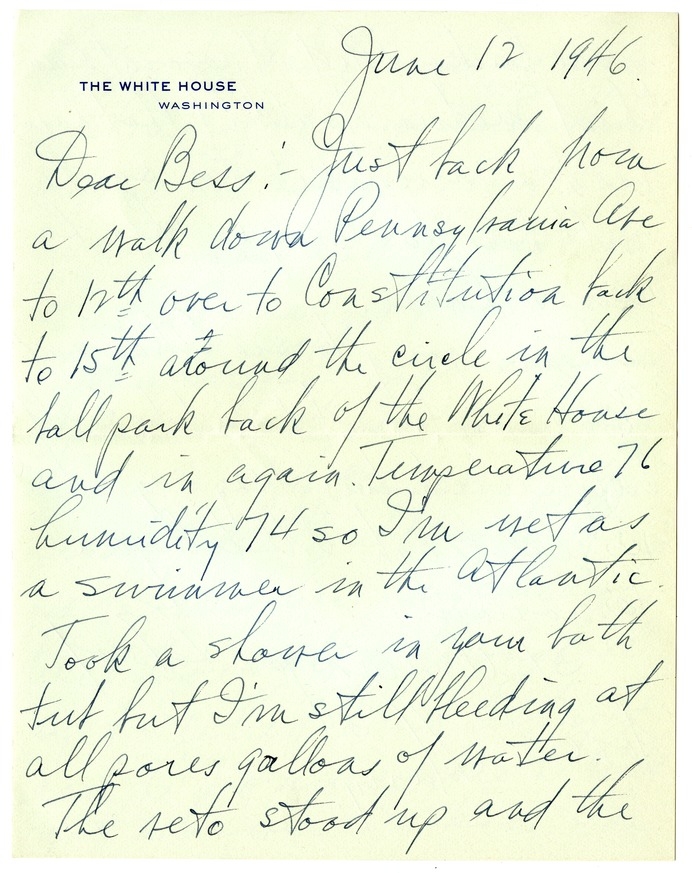 June 12 1946.
THE WHITE HOUSE
WASHINGTON
Dear Bess:- Just back from
a walk down Pennsylvania Ave
to 12th over to Constitution back
to 15th around the circle in the
ball park back of the White House
and in again. Temperature 76
humidity 74 so I'm wet as
a swimmer in the Atlantic.
Took a shower in your bath
tub but I'm still bleeding at
all pores gallons of water.
The veto stood up and the